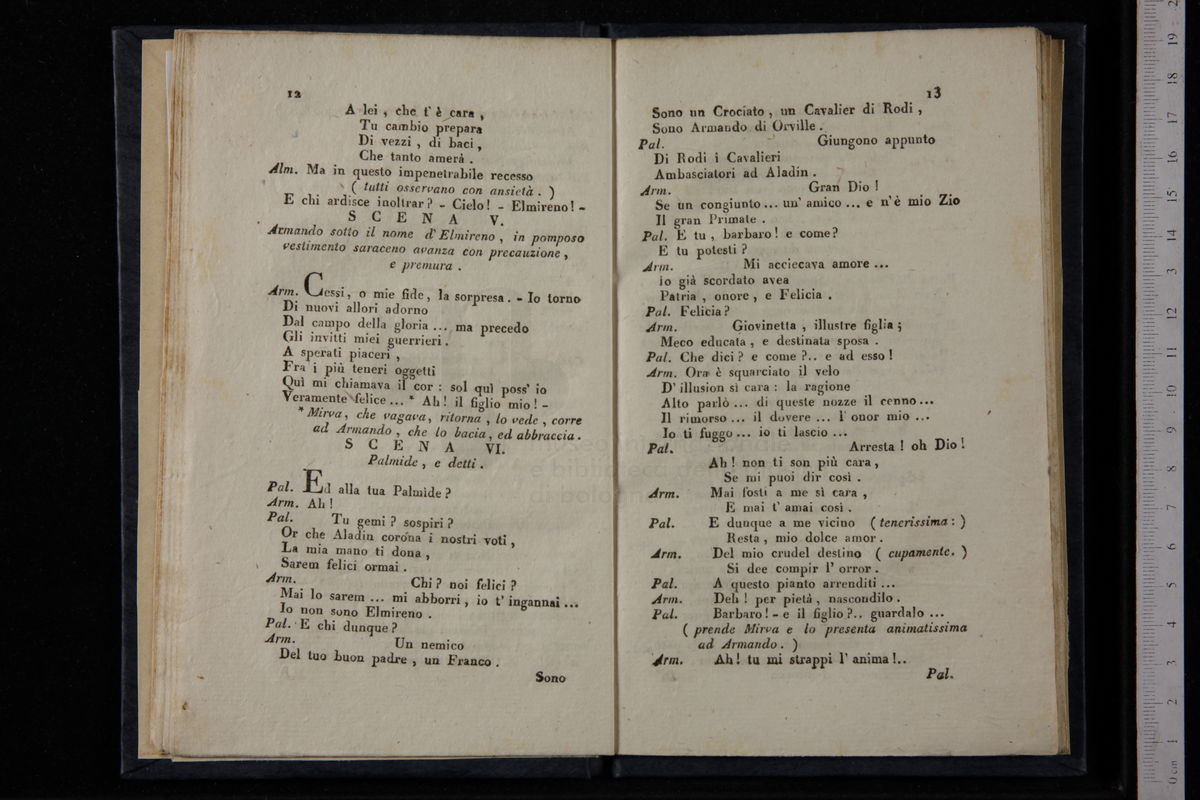 12
A lei , che t' è cara ,
Tu cambio prepara
Di vezzi , di baci ,
Che tanto amerà .
Alm. Ma in questo impenetrabile recesso
( tutti osservano con ansietà . )
E chi ardisce inoltrar ? - Cielo ! - Elmireno ! -
S C E N A V.
Armando sotto il nome d' Elmireno , in pomposo
vestimento saraceno avanza con precauzione ,
e premura .
Arm. Cessi, o mie fide, la sorpresa. - Io torno
Di nuovi allori adorno
Dal campo della gloria ... ma precedo
Gli invitti miei guerrieri .
A sperati piaceri ,
Fra i più teneri oggetti
Quì mi chiamava il cor : sol quì poss' io
Veramente felice ... * Ah ! il figlio mio ! -
* Mirva, che vagava, ritorna , lo vede , corre
ad Armando , che lo bacia, ed abbraccia .
S C E N A VI.
Palmide , e detti .
Pal. Ed alla tua Palmide ?
Arm. Ah !
Pal. Tu gemi ? sospiri ?
Or che Aladin corona i nostri voti ,
La mia mano ti dona ,
Sarem felici ormai .
Arm. Chi ? noi felici ?
Mai lo sarem ... mi abborri , io t' ingannai ...
Io non sono Elmireno .
Pal. E chi dunque ?
Arm. Un nemico
Del tuo buon padre , un Franco .
Sono
13
Sono un Crociato , un Cavalier di Rodi ,
Sono Armando di Orville .
Pal. Giungono appunto
Di Rodi i Cavalieri
Ambasciatori ad Aladin .
Arm. Gran Dio !
Se un congiunto ... un' amico ... e n'è mio Zio
Il gran Primate .
Pal. E tu , barbaro ! e come ?
E tu potesti ?
Arm. Mi acciecava amore ...
io già scordato avea
Patria , onore , e Felicia .
Pal. Felicia ?
Arm. Giovinetta , illustre figlia ;
Meco educata , e destinata sposa .
Pal. Che dici ? e come ?.. e ad esso !
Arm. Ora è squarciato il velo
D' illusion sì cara : la ragione
Alto parlò ... di queste nozze il cenno ...
Il rimorso ... il dovere ... l' onor mio ...
Io ti fuggo ... io ti lascio ...
Pal. Arresta ! oh Dio !
Ah ! non ti son più cara ,
Se mi puoi dir così .
Arm. Mai fosti a me sì cara ,
E mai t' amai così .
Pal. E dunque a me vicino ( tenerissima : )
Resta , mio dolce amor .
Arm. Del mio crudel destino ( cupamente. )
Si dee compir l' orror .
Pal. A questo pianto arrenditi ...
Arm. Deh ! per pietà , nascondilo .
Pal. Barbaro ! - e il figlio ?.. guardalo ...
( prende Mirva e lo presenta animatissima
ad Armando . )
Arm. Ah ! tu mi strappi l' anima !..
Pal.